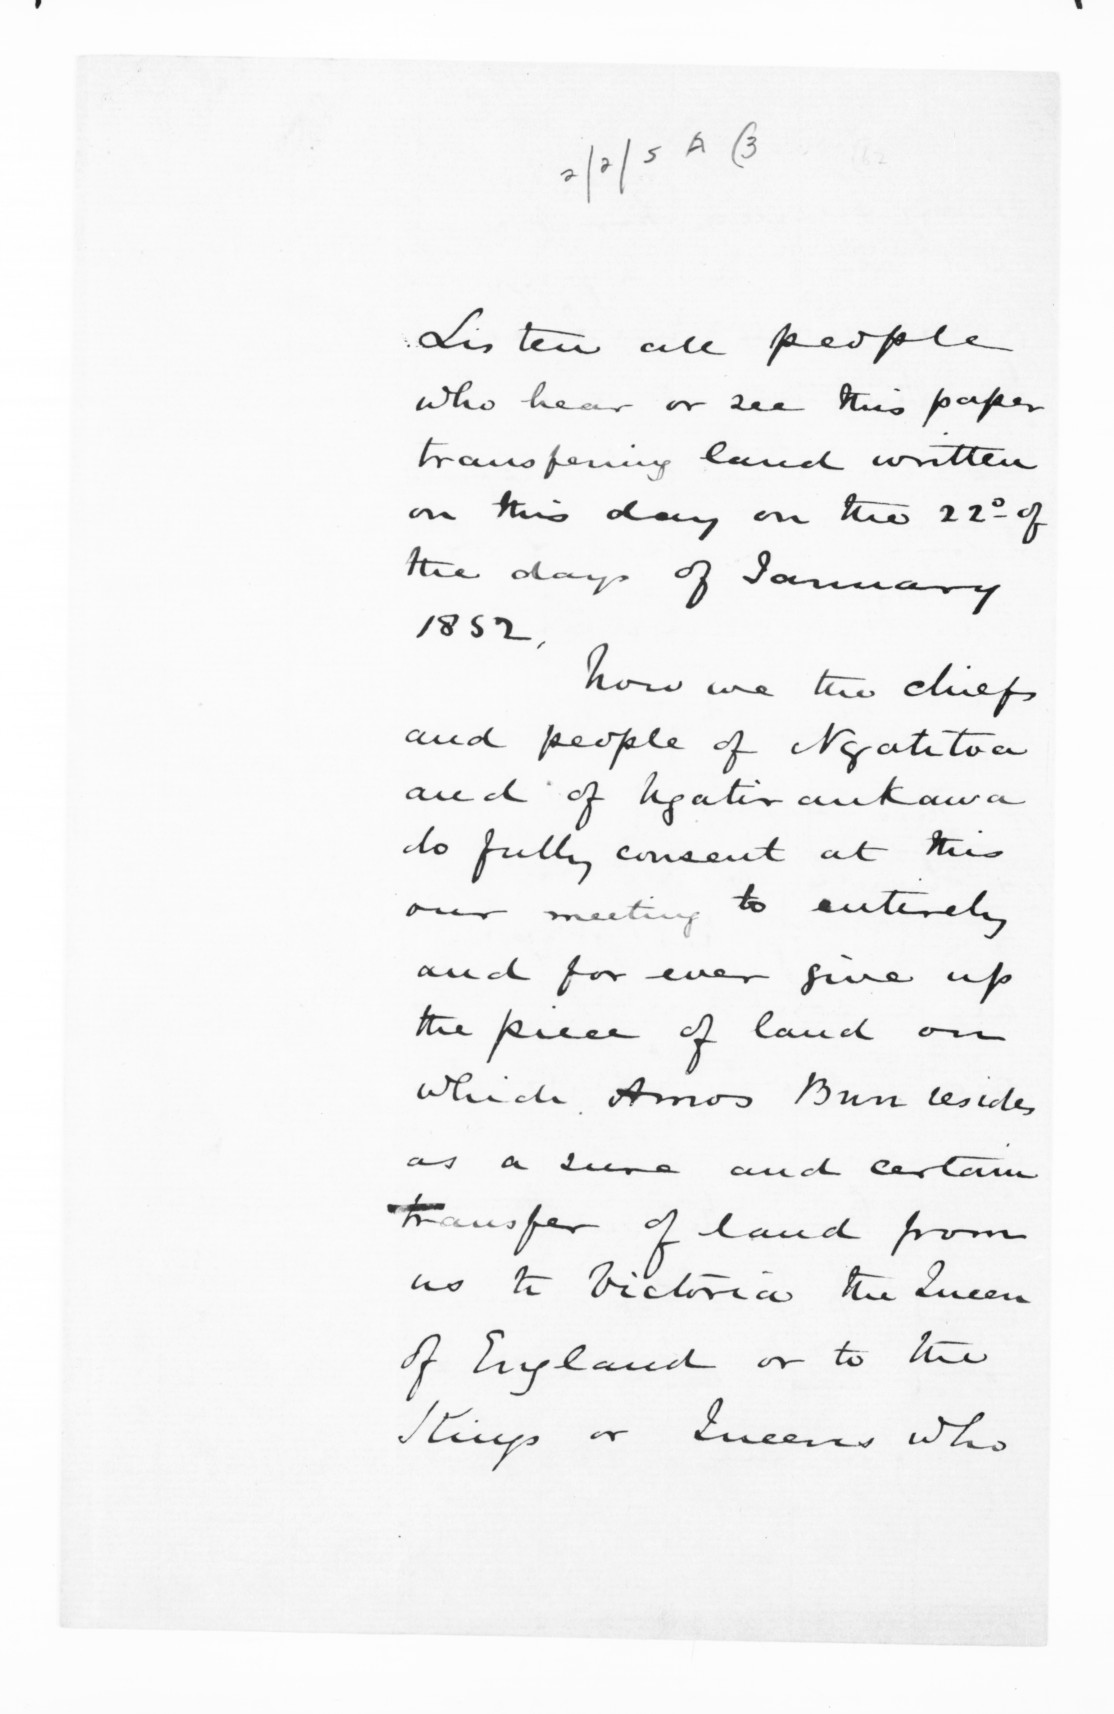 2/2/5 A (3
Listen all people
who hear or see this paper
transferring land written
on this day on the 22º of
the days of January
1852.
Now we the chiefs
and people of Ngatitoa
and of Ngatiraukawa
do fully consent at this
our meeting to entirely
and for ever give up
the piece of land on
which Amos Burr resides
as a sure and certain
transfer of land from
us to Victoria the Queen
of England or to the
Kings or Queens who